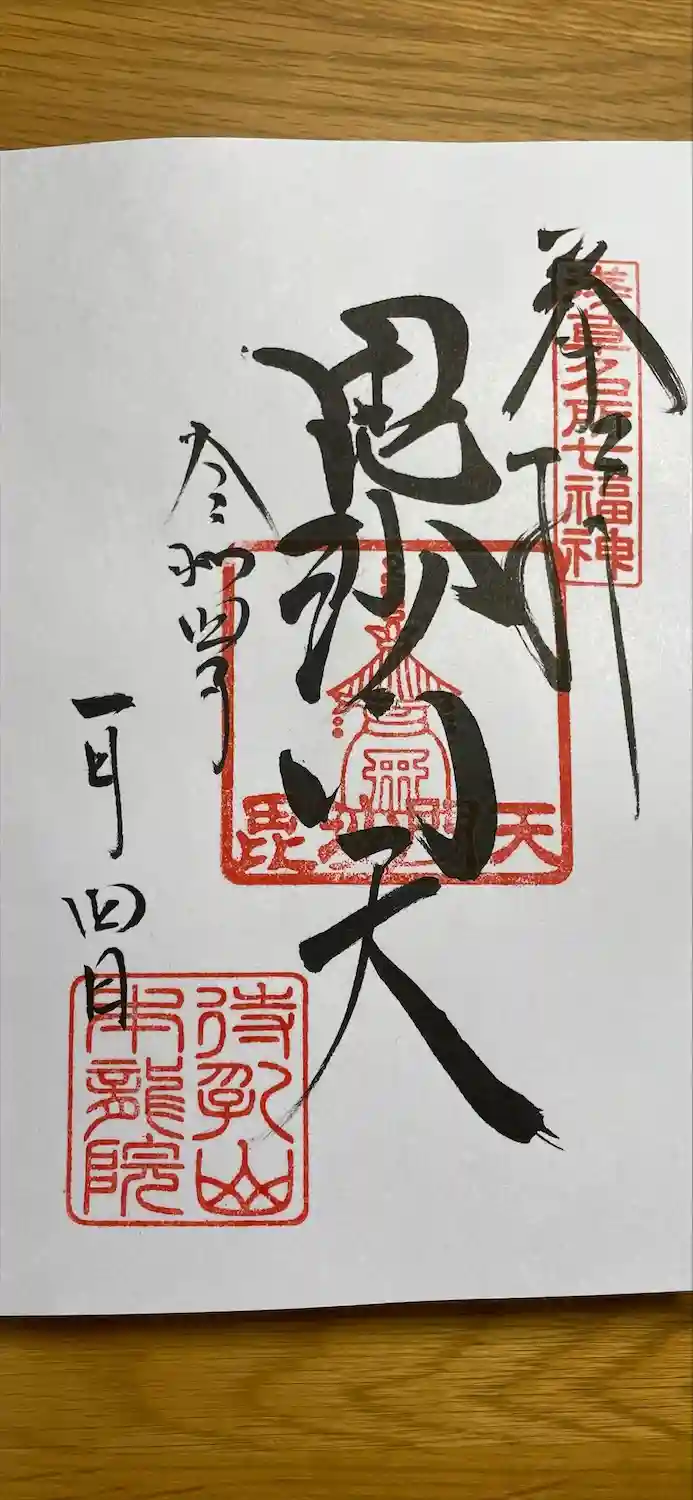 奉拝
浅草名所七福神
毘沙門天
毘沙門天
令和四年
一月四日
待乳山
本龍院